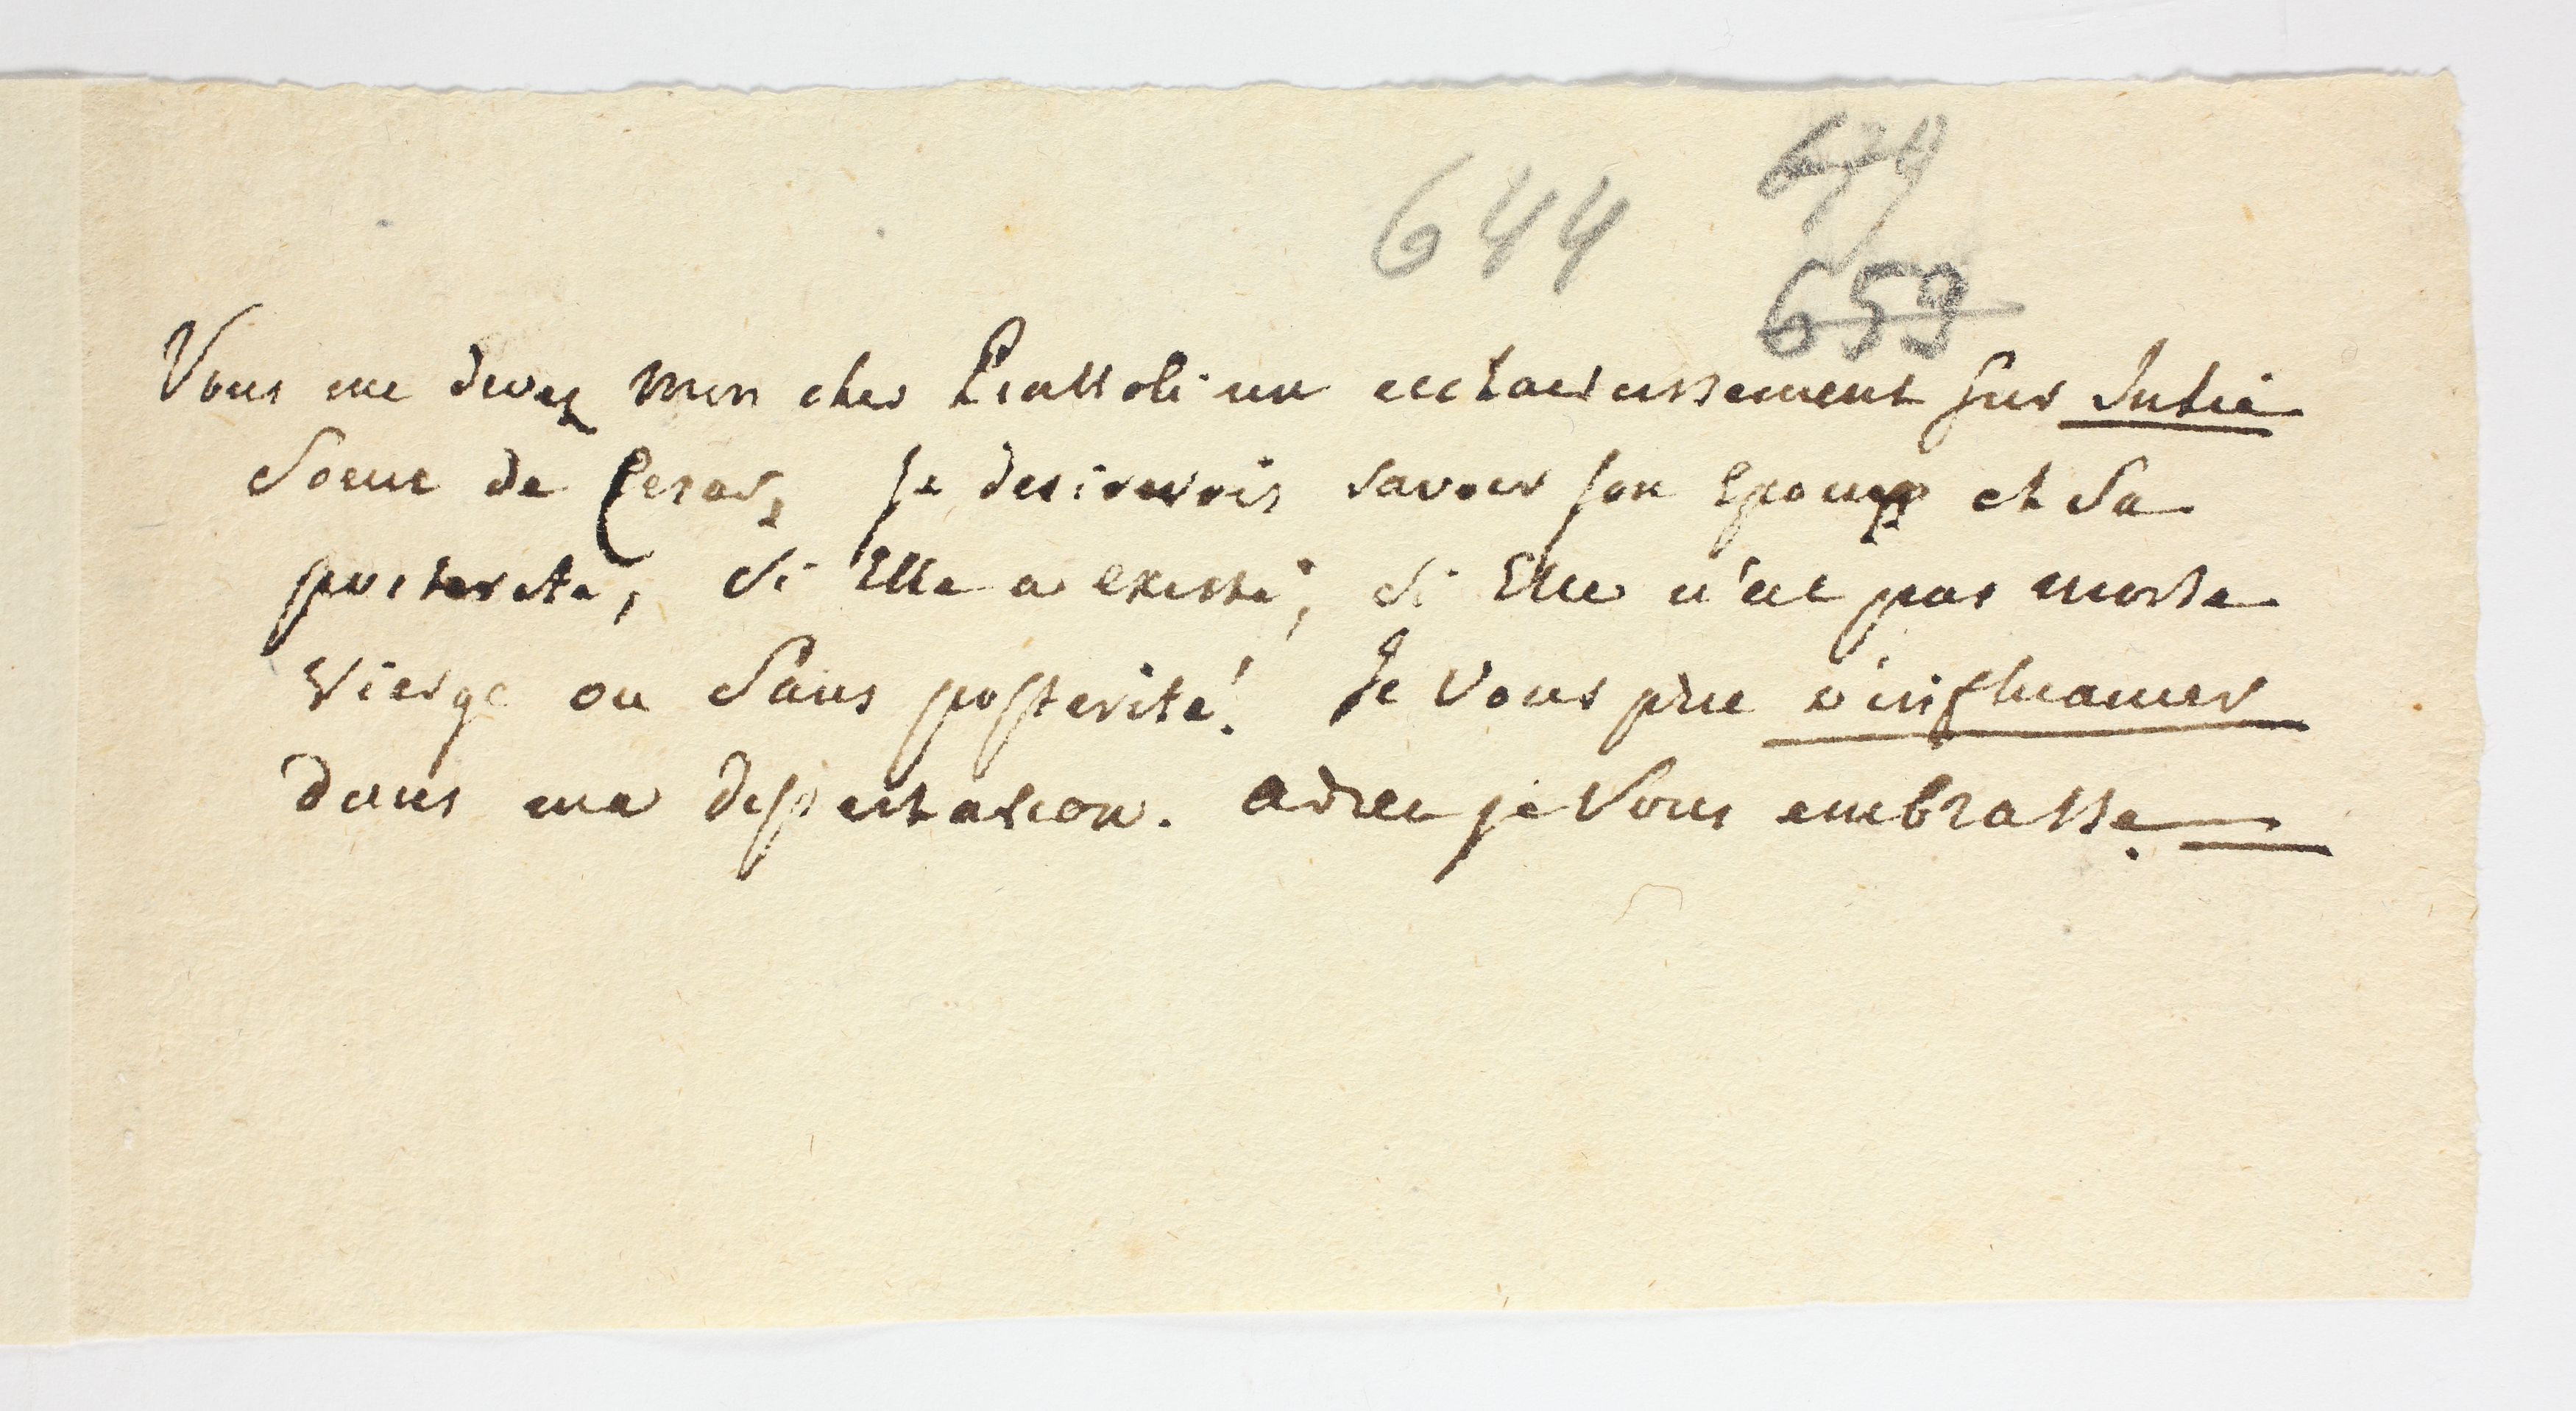 644
674
659
Vous me devez mon cher Piattoli un ecclaircissement sur Julie
Soeur de Cesar, Je desirerois savoir son Epoux et Sa
posterité, Si Elle a existé, si Elle n'est pas morte
vierge ou Sans posterité! Je vous prie
dans ma dissertation. adieu je Vous embrasse.